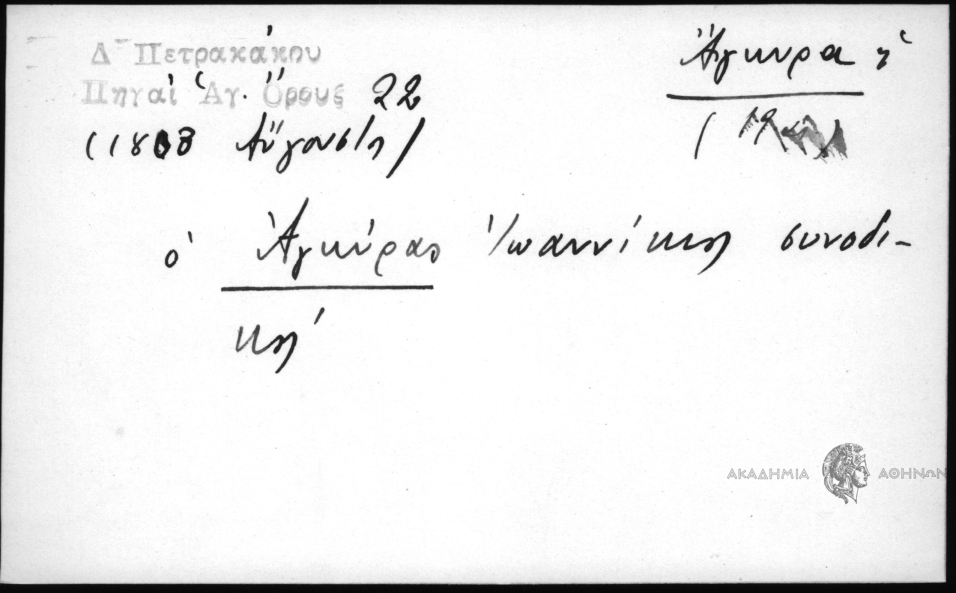 Δ Πετρακάκου
Πηγαὶ Ἁγ. Ὄρους 22
Ἄγκυρα ἡ
Αὔγουστος
ὁ Ἀγκύρας Ἰωαννίκιος συνοδι-
κή
ΑΚΑΔΗΜΙΑ ΑΘΗΝΩΝ